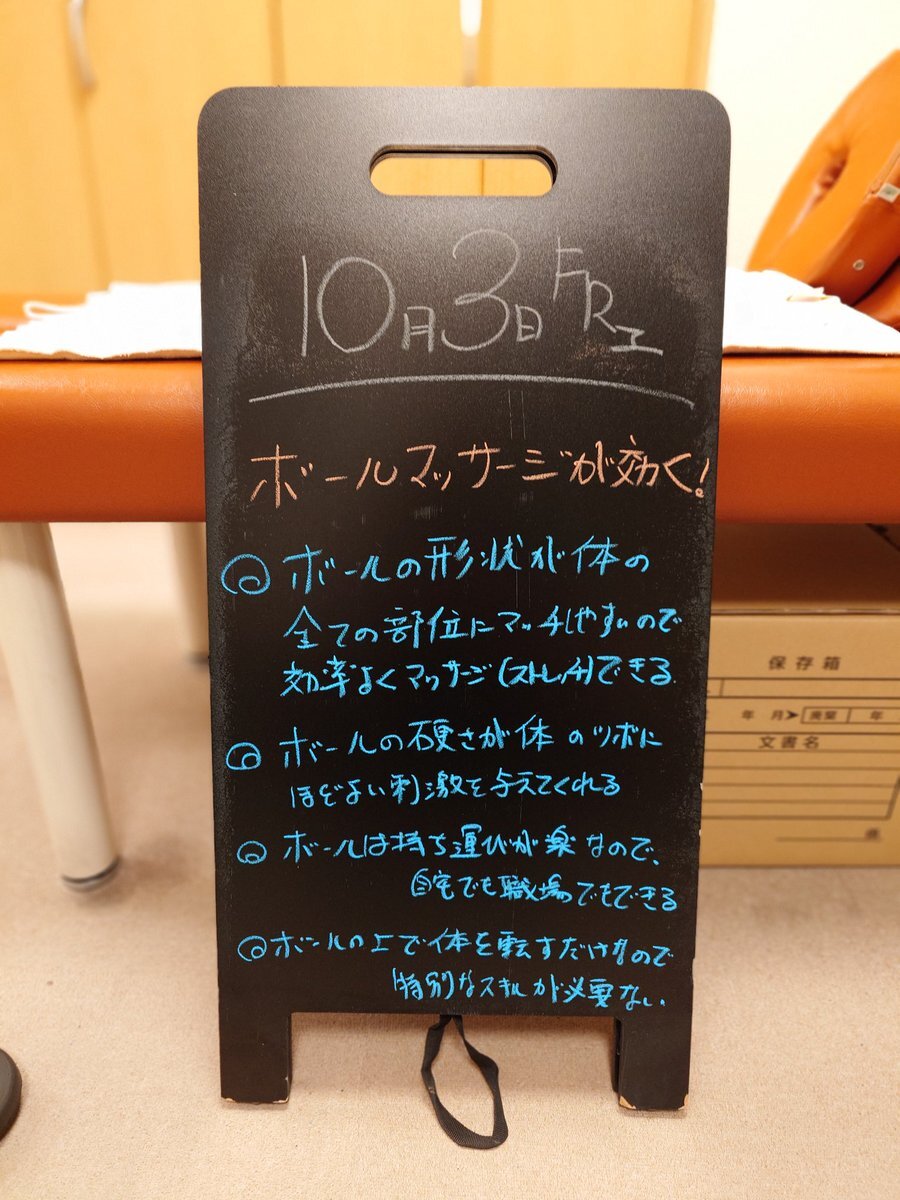 10月3日 FRI
ボールマッサージが効く!
◎ ボールの形状が体の
全ての部位にマッチしやすいので
効率よくマッサージ(ストレッチ)できる.
◎ ボールの硬さが体のツボに
ほどよい刺激を与えてくれる
◎ ボールは持ち運びが楽なので、
自宅でも職場でもできる
◎ ボールの上で体を転すだけなので
特別なスキルが必要ない.
保存箱
年 月➤ 廃棄 年
文書名